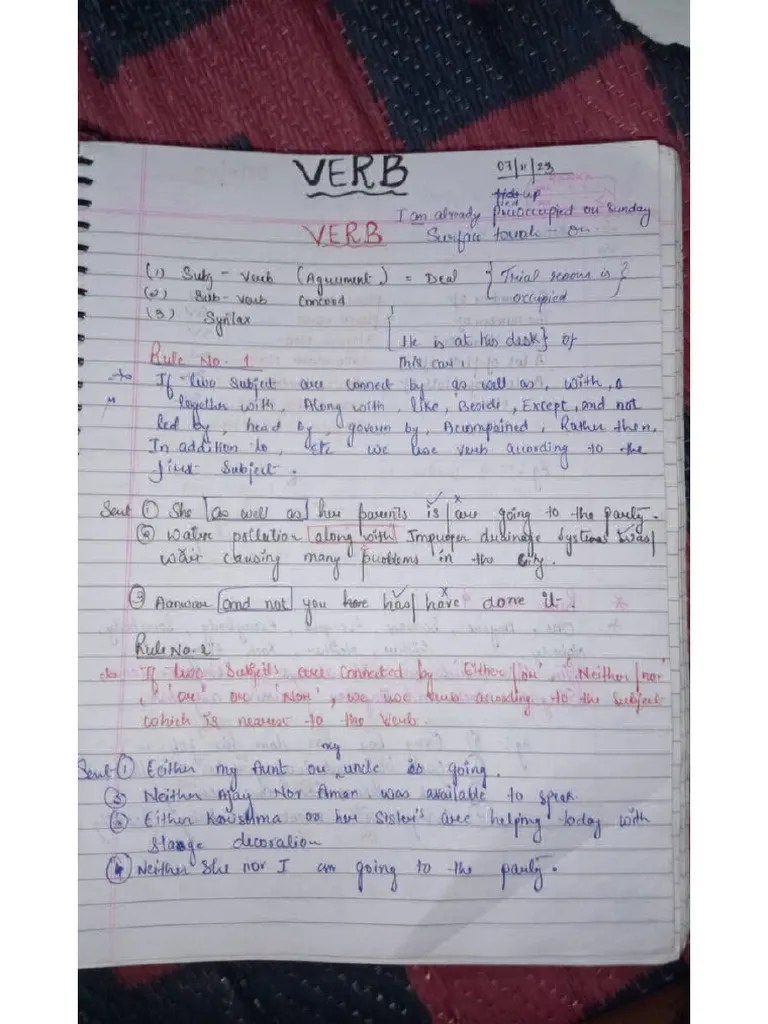 VERB
07/11/23
up
I am already preoccupied on Sunday
VERB Surface touch - on
(1) Subj - Verb (Agreement) = Deal { Trial renous is }
(2) Sub-verb Concord occupied
(3) Syntax [ He is at his desk } of
Rule No. 1 this car
If two subject are connect by as well as, with,
together with, Along with, like, Beside, Except, and not
led by, head by, govern by, Accompained, Rather then,
In addition to, etc we use verb according to the
first Subject.
Sent ① She as well as her parents is/are going to the party.
② Water pollution along with Improper drainage systems was/
were causing many problems in the city.
③ and not you have has/have done it.
Rule No. 2
If two Subjects are connected by 'Either/or' 'Neither/nor'
, 'or' or 'Nor', we use verb according to the subject
which is nearest to the Verb.
my
Sent ① Ecither my Aunt or uncle is going.
③ Neither Ajay Nor Aman was available to speak.
② Either Karishma or her Sister's are helping today with
stage decoration
④ Neither She nor I am going to the party.